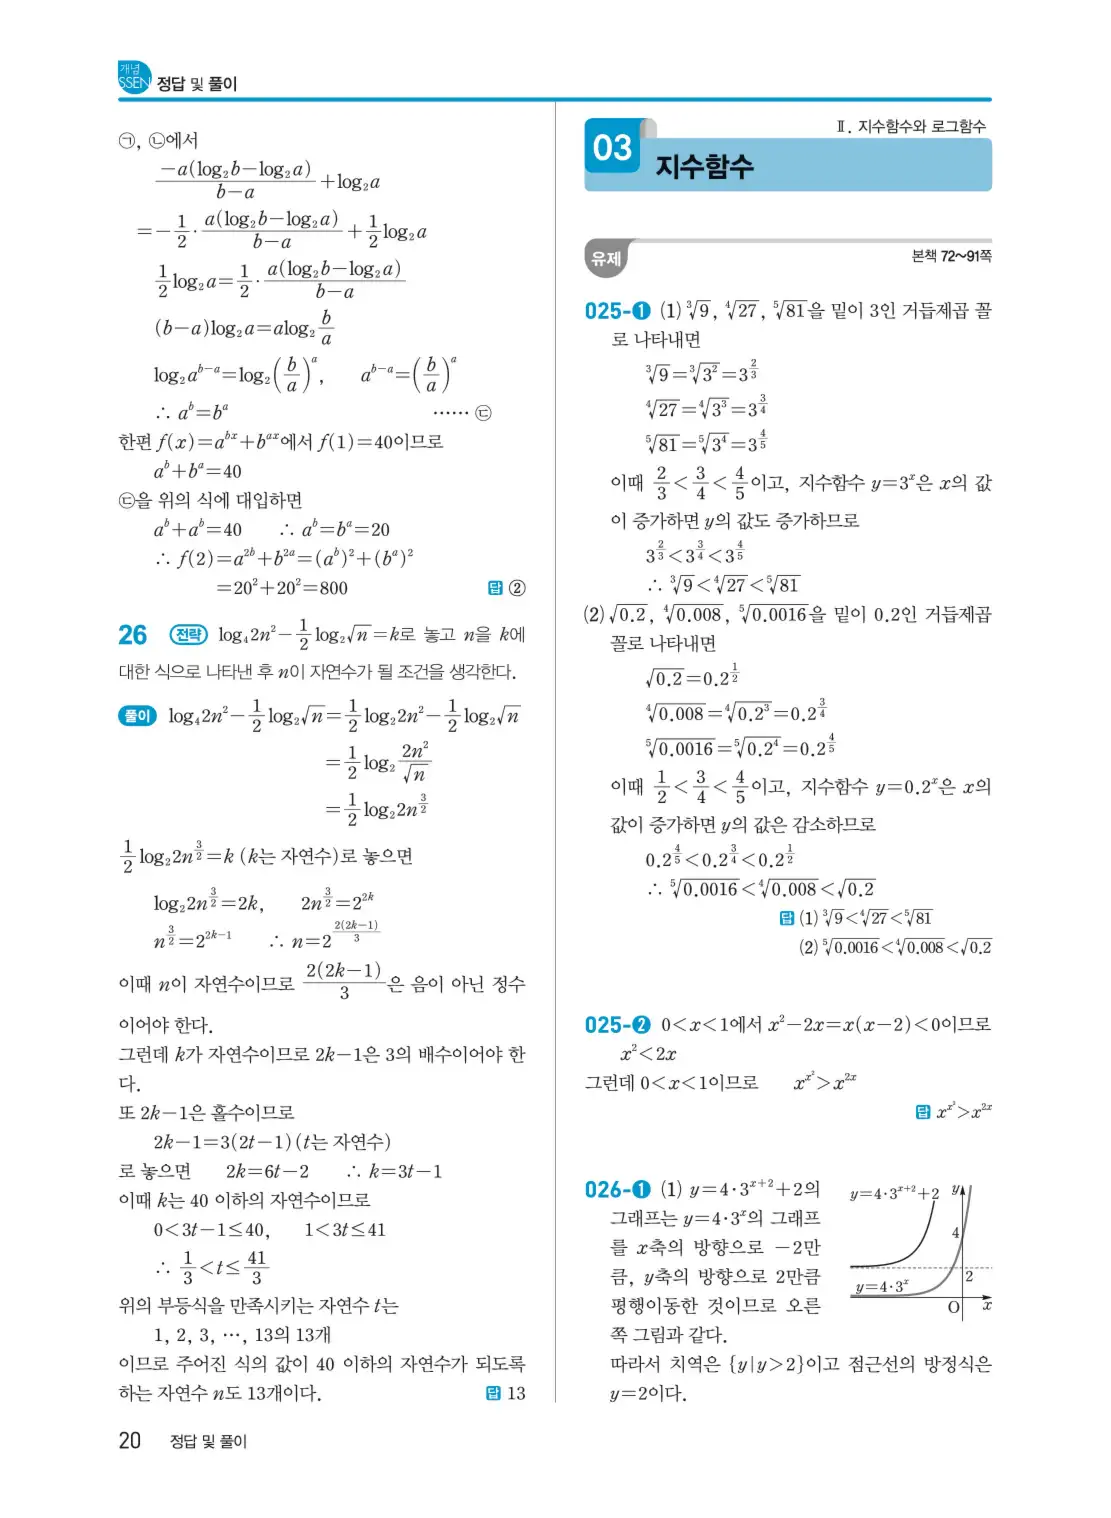 개념
SSEN 정답 및 풀이
㉠, ㉡에서
\frac{-a(log₂b−log₂a)}{b−a}+log₂a
=−\frac{1}{2}·\frac{a(log₂b−log₂a)}{b−a}+\frac{1}{2}log₂a
\frac{1}{2}log₂a=\frac{1}{2}·\frac{a(log₂b−log₂a)}{b−a}
(b−a)log₂a=alog₂\frac{b}{a}
log₂a^{b−a}=log₂(\frac{b}{a})^{a}, a^{b−a}=(\frac{b}{a})^{a}
∴ a^{b}=b^{a} …… ㉢
한편 f(x)=a^{bx}+b^{ax}에서 f(1)=40이므로
a^{b}+b^{a}=40
㉢을 위의 식에 대입하면
a^{b}+a^{b}=40 ∴ a^{b}=b^{a}=20
∴ f(2)=a^{2b}+b^{2a}=(a^{b})²+(b^{a})²
=20²+20²=800 답 ②
26 전략 log₄2n²−\frac{1}{2}log₂√n=k로 놓고 n을 k에
대한 식으로 나타낸 후 n이 자연수가 될 조건을 생각한다.
풀이 log₄2n²−\frac{1}{2}log₂√n=\frac{1}{2}log₂2n²−\frac{1}{2}log₂√n
=\frac{1}{2}log₂\frac{2n²}{√n}
=\frac{1}{2}log₂2n^{\frac{3}{2}}
\frac{1}{2}log₂2n^{\frac{3}{2}}=k (k는 자연수)로 놓으면
log₂2n^{\frac{3}{2}}=2k, 2n^{\frac{3}{2}}=2^{2k}
n^{\frac{3}{2}}=2^{2k−1} ∴ n=2^{\frac{2(2k−1)}{3}}
이때 n이 자연수이므로 \frac{2(2k−1)}{3}은 음이 아닌 정수
이어야 한다.
그런데 k가 자연수이므로 2k−1은 3의 배수이어야 한
다.
또 2k−1은 홀수이므로
2k−1=3(2t−1) (t는 자연수)
로 놓으면 2k=6t−2 ∴ k=3t−1
이때 k는 40 이하의 자연수이므로
0<3t−1≤40, 1<3t≤41
∴ \frac{1}{3}<t≤\frac{41}{3}
위의 부등식을 만족시키는 자연수 t는
1, 2, 3, …, 13의 13개
이므로 주어진 식의 값이 40 이하의 자연수가 되도록
하는 자연수 n도 13개이다. 답 13
20 정답 및 풀이
Ⅱ. 지수함수와 로그함수
03 지수함수
유제 본책 72~91쪽
025-❶ (1) ∛9, ∜27, ⁵√81을 밑이 3인 거듭제곱 꼴
로 나타내면
∛9=∛3²=3^{\frac{2}{3}}
∜27=∜3³=3^{\frac{3}{4}}
⁵√81=⁵√3⁴=3^{\frac{4}{5}}
이때 \frac{2}{3}<\frac{3}{4}<\frac{4}{5}이고, 지수함수 y=3^{x}은 x의 값
이 증가하면 y의 값도 증가하므로
3^{\frac{2}{3}}<3^{\frac{3}{4}}<3^{\frac{4}{5}}
∴ ∛9<∜27<⁵√81
(2) √0.2, ∜0.008, ⁵√0.0016을 밑이 0.2인 거듭제곱
꼴로 나타내면
√0.2=0.2^{\frac{1}{2}}
∜0.008=∜0.2³=0.2^{\frac{3}{4}}
⁵√0.0016=⁵√0.2⁴=0.2^{\frac{4}{5}}
이때 \frac{1}{2}<\frac{3}{4}<\frac{4}{5}이고, 지수함수 y=0.2^{x}은 x의
값이 증가하면 y의 값은 감소하므로
0.2^{\frac{4}{5}}<0.2^{\frac{3}{4}}<0.2^{\frac{1}{2}}
∴ ⁵√0.0016<∜0.008<√0.2
답 (1) ∛9<∜27<⁵√81
(2) ⁵√0.0016<∜0.008<√0.2
025-❷ 0<x<1에서 x²−2x=x(x−2)<0이므로
x²<2x
그런데 0<x<1이므로 x^{x²}>x^{2x}
답 x^{x²}>x^{2x}
026-❶ (1) y=4·3^{x+2}+2의
그래프는 y=4·3^{x}의 그래프
를 x축의 방향으로 −2만
큼, y축의 방향으로 2만큼
평행이동한 것이므로 오른
쪽 그림과 같다.
y=4·3^{x+2}+2 y
4
2
y=4·3^{x}
O x
따라서 치역은 {y|y>2}이고 점근선의 방정식은
y=2이다.